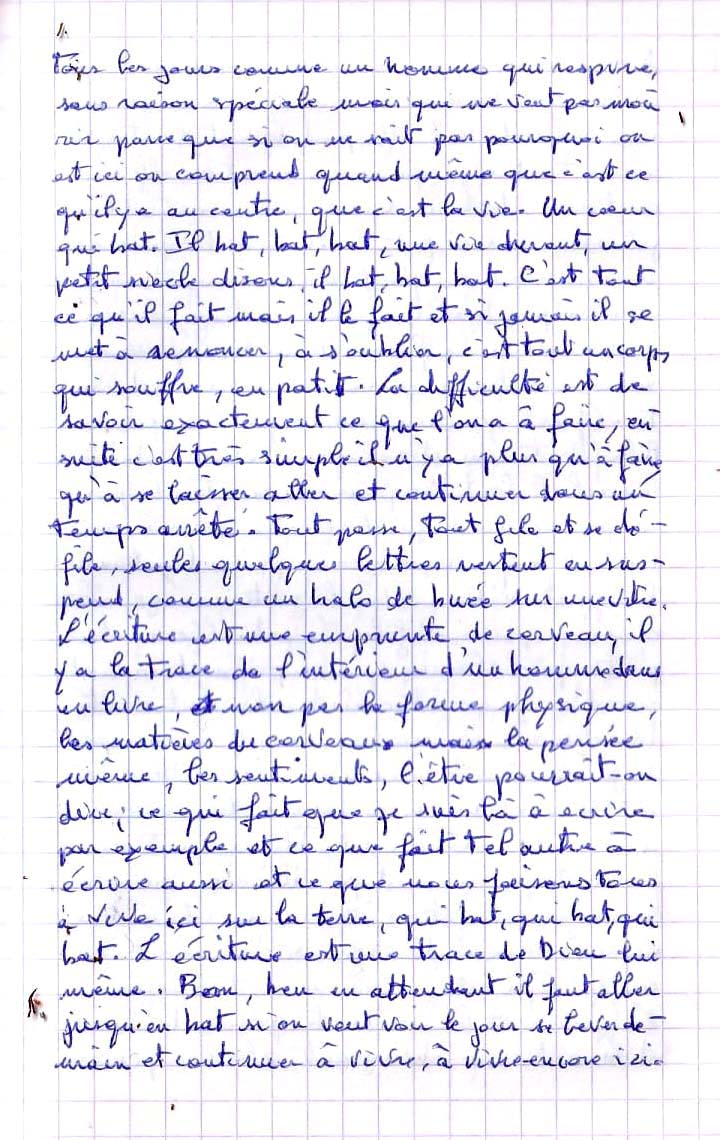 1.
Tous les jours comme un homme qui respire,
sans raison spéciale mais qui ne veut pas mou
rir parce que si on ne sait pas pourquoi on
est ici on comprend quand même que c'est ce
qu'il y a au centre, que c'est la vie. Un coeur
qui bat. Il bat, bat, bat, une vie durant, un
petit siècle disons, il bat, bat, bat. C'est tout
ce qu'il fait mais il le fait et si jamais il se
met à renoncer, à s'oublier, c'est tout un corps
qui souffre, en patit. La difficulté est de
savoir exactement ce que l'on a à faire, en
suite c'est très simple il n'y a plus qu'à faire
qu'à se laisser aller et continuer dans un
temps arrêté. Tout passe, tout file et se dé-
file, seules quelques lettres restent en sus-
pend, comme un halo de buée sur une vitre.
L'écriture est une emprunte de cerveau, il
y a la trace de l'intérieur d'un homme dans
un livre, et non pas la forme physique,
les matières du cerveau mais la pensée
même, les sentiments, l'être pourrait-on
dire; ce qui fait que je suis là à écrire
par exemple et ce que fait tel autre à
écrire aussi et ce que nous faisons tous
à vivre ici sur la terre, qui bat, qui bat, qui
bat. L'écriture est une trace de Dieu lui
même. Bon, ben en attendant il faut aller
jusqu'en bat si on veut voir le jour se lever de-
main et continuer à vivre, à vivre encore ici.